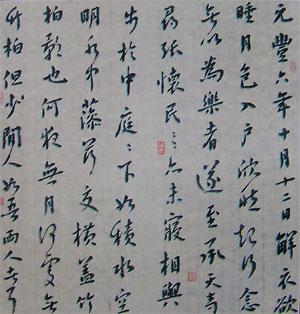 元豐六年十月十二日解衣欲
睡月色入戶欣然起行念
無以為樂者遂至承天寺
尋張懷民〻亦未寢相與
步於中庭〻下如積水空
明水中藻荇交橫蓋竹
柏影也何夜無月何處無
竹柏但少閒人如吾兩人者耳